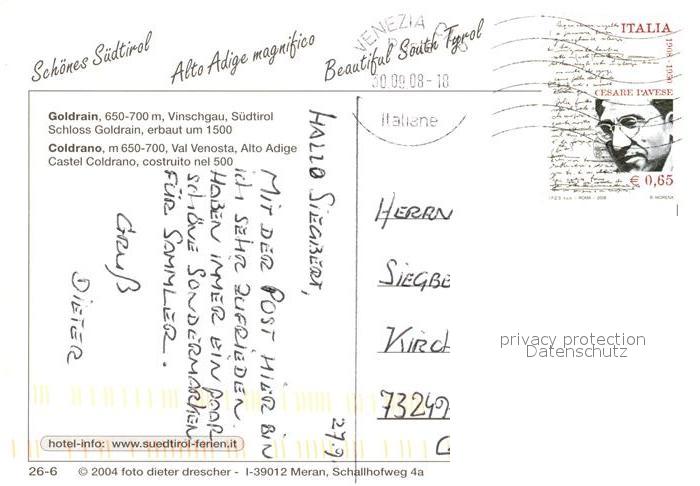 Schönes Südtirol
Alto Adige magnifico
Beautiful South Tyrol
VENEZIA
30.09.08-18
Italiane
ITALIA
1908 - 1950
CESARE PAVESE
€ 0,65
I.P.Z.S. S.p.A. - ROMA - 2008
Goldrain, 650-700 m, Vinschgau, Südtirol
Schloss Goldrain, erbaut um 1500
Coldrano, m 650-700, Val Venosta, Alto Adige
Castel Coldrano, costruito nel 500
27.9.
HALLO SIEGBERT,
MIT DER POST HIER BIN
ICH SEHR ZUFRIEDEN.
HABEN IMMER EIN PAAR
SCHÖNE SONDERMARKEN
FÜR SAMMLER.
GRUß
DIETER
HERRN
SIEGBE
KIRCH
73249
privacy protection
Datenschutz
hotel-info: www.suedtirol-ferien.it
26-6 © 2004 foto dieter drescher - I-39012 Meran, Schallhofweg 4a